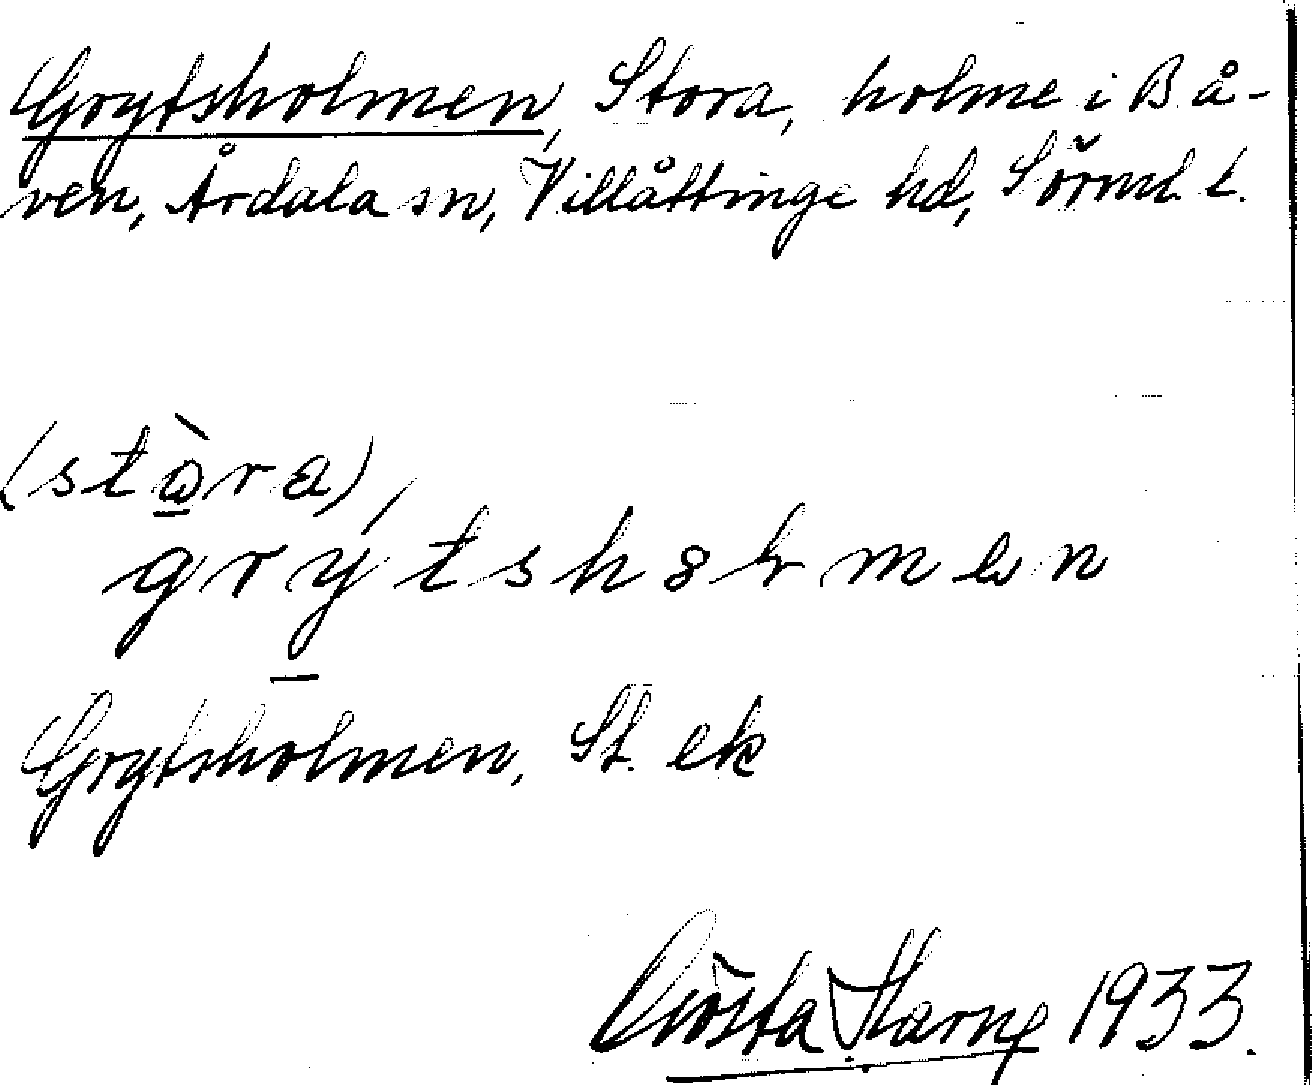 Grytsholmen, Stora, holme i Bå-
ven, Årdala sn, Villåttinge hd, Sörml. l.
(stò̱ra),
grýtshȯlmen
Grytsholmen, St. ek
Gösta Harne 1933.